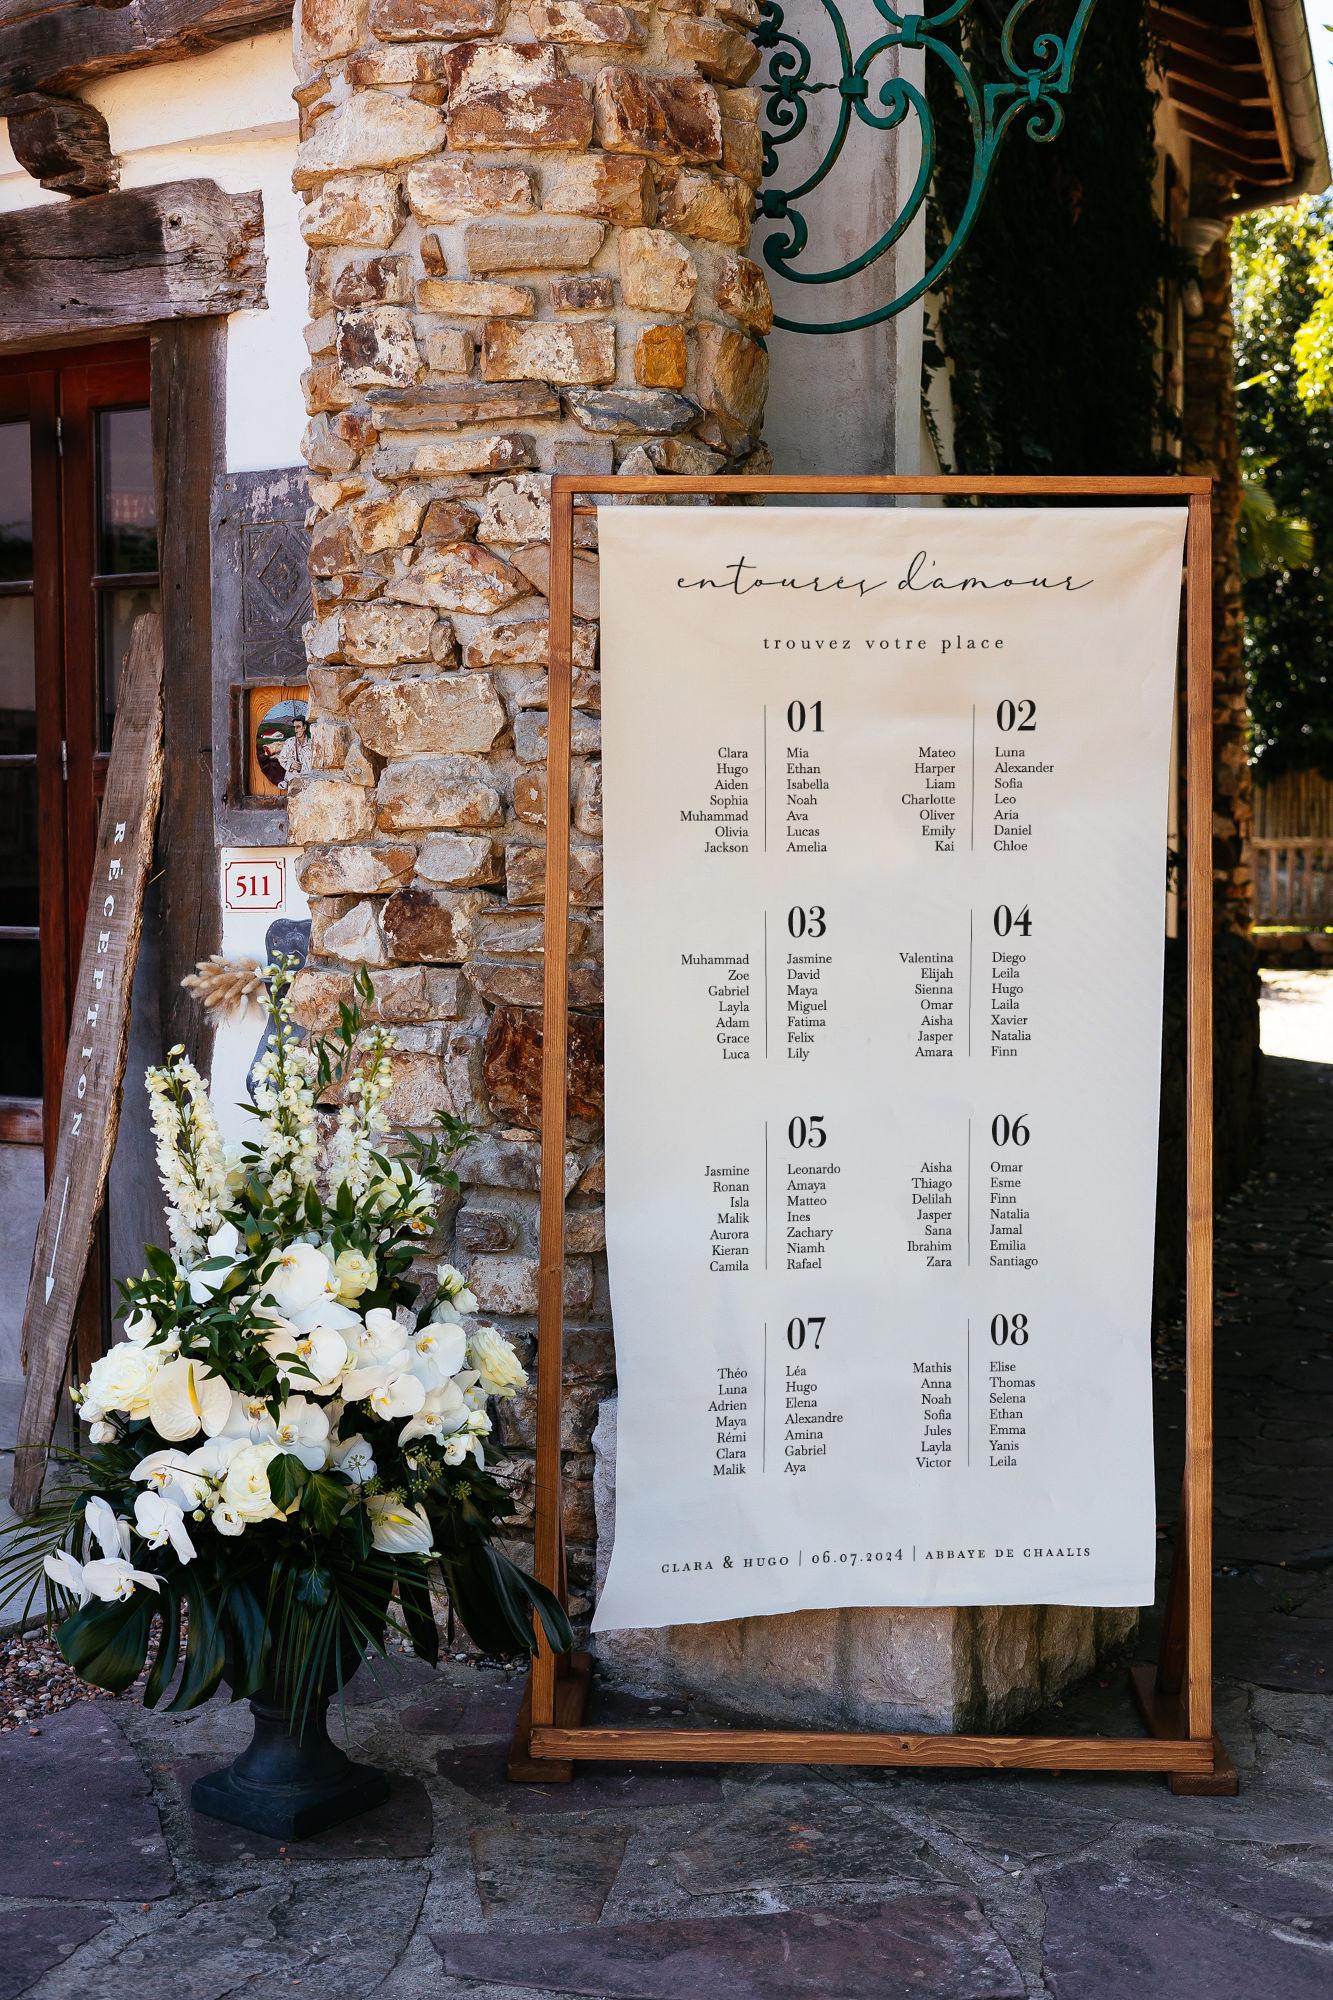 entourés d'amour
trouvez votre place
01
Clara Mia
Hugo Ethan
Aiden Isabella
Sophia Noah
Muhammad Ava
Olivia Lucas
Jackson Amelia
02
Mateo Luna
Harper Alexander
Liam Sofia
Charlotte Leo
Oliver Aria
Emily Daniel
Kai Chloe
03
Muhammad Jasmine
Zoe David
Gabriel Maya
Layla Miguel
Adam Fatima
Grace Felix
Luca Lily
04
Valentina Diego
Elijah Leila
Sienna Hugo
Omar Laila
Aisha Xavier
Jasper Natalia
Amara Finn
05
Jasmine Leonardo
Ronan Amaya
Isla Matteo
Malik Ines
Aurora Zachary
Kieran Niamh
Camila Rafael
06
Aisha Omar
Thiago Esme
Delilah Finn
Jasper Natalia
Sana Jamal
Ibrahim Emilia
Zara Santiago
07
Théo Léa
Luna Hugo
Adrien Elena
Maya Alexandre
Rémi Amina
Clara Gabriel
Malik Aya
08
Mathis Elise
Anna Thomas
Noah Selena
Sofia Ethan
Jules Emma
Layla Yanis
Victor Leila
CLARA & HUGO | 06.07.2024 | ABBAYE DE CHAALIS
511
RÉCEPTION